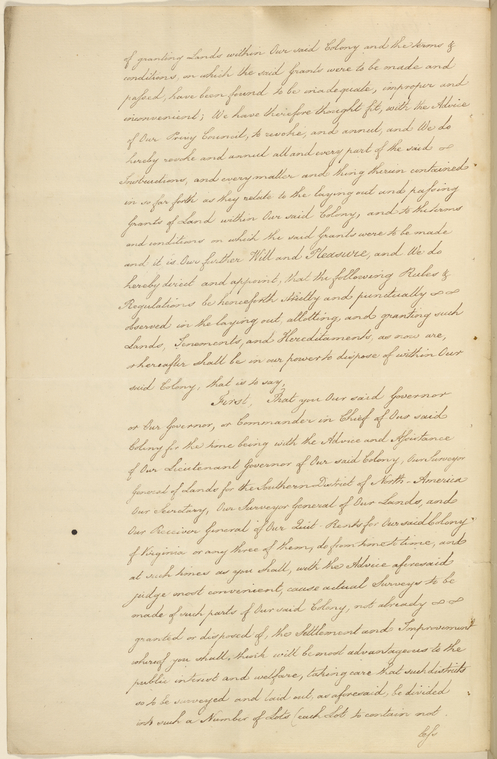 of granting Lands within Our said Colony and the terms &
conditions, on which the said Grants were to be made and
passed, have been found to be inadequate, improper and
inconvenient; We have therefore thought fit, with the Advice
of Our Privy Council, to revoke, and annul, and We do
hereby revoke and annul all and every part of the said
Instructions, and every matter and thing therein contained
in so far forth as they relate to the laying out and passing
Grants of Land within Our said Colony, and to the terms
and conditions on which the said Grants were to be made
and it is Our further Will and Pleasure, and We do
hereby direct and appoint, that the following Rules &
Regulations be henceforth strictly and punctually
observed in the laying out, allotting, and granting such
Lands, Tenements, and Hereditaments, as now are,
or hereafter shall be in our power to dispose of within Our
said Colony, that is to say,
First, That you Our said Governor
or Our Governor, or Commander in Chief of Our said
Colony for the time being with the Advice and Assistance
of Our Lieutenant Governor of Our said Colony, Our Surveyor
General of Lands for the Southern District of North-America
Our Secretary, Our Surveyor General of Our Lands, and
Our Receiver General of Our Quit Rents for Our said Colony
of Virginia or any three of them, do from time to time, and
at such times as you shall, with the Advice aforesaid
judge most convenient, cause actual Surveys to be
made of such parts of Our said Colony, not already
granted or disposed of, the Settlement and Improvement
whereof you shall, think will be most advantageous to the
public interest and welfare, taking care that such districts
so to be surveyed and laid out, as aforesaid, be divided
into such a Number of Lots (each Lot to contain not